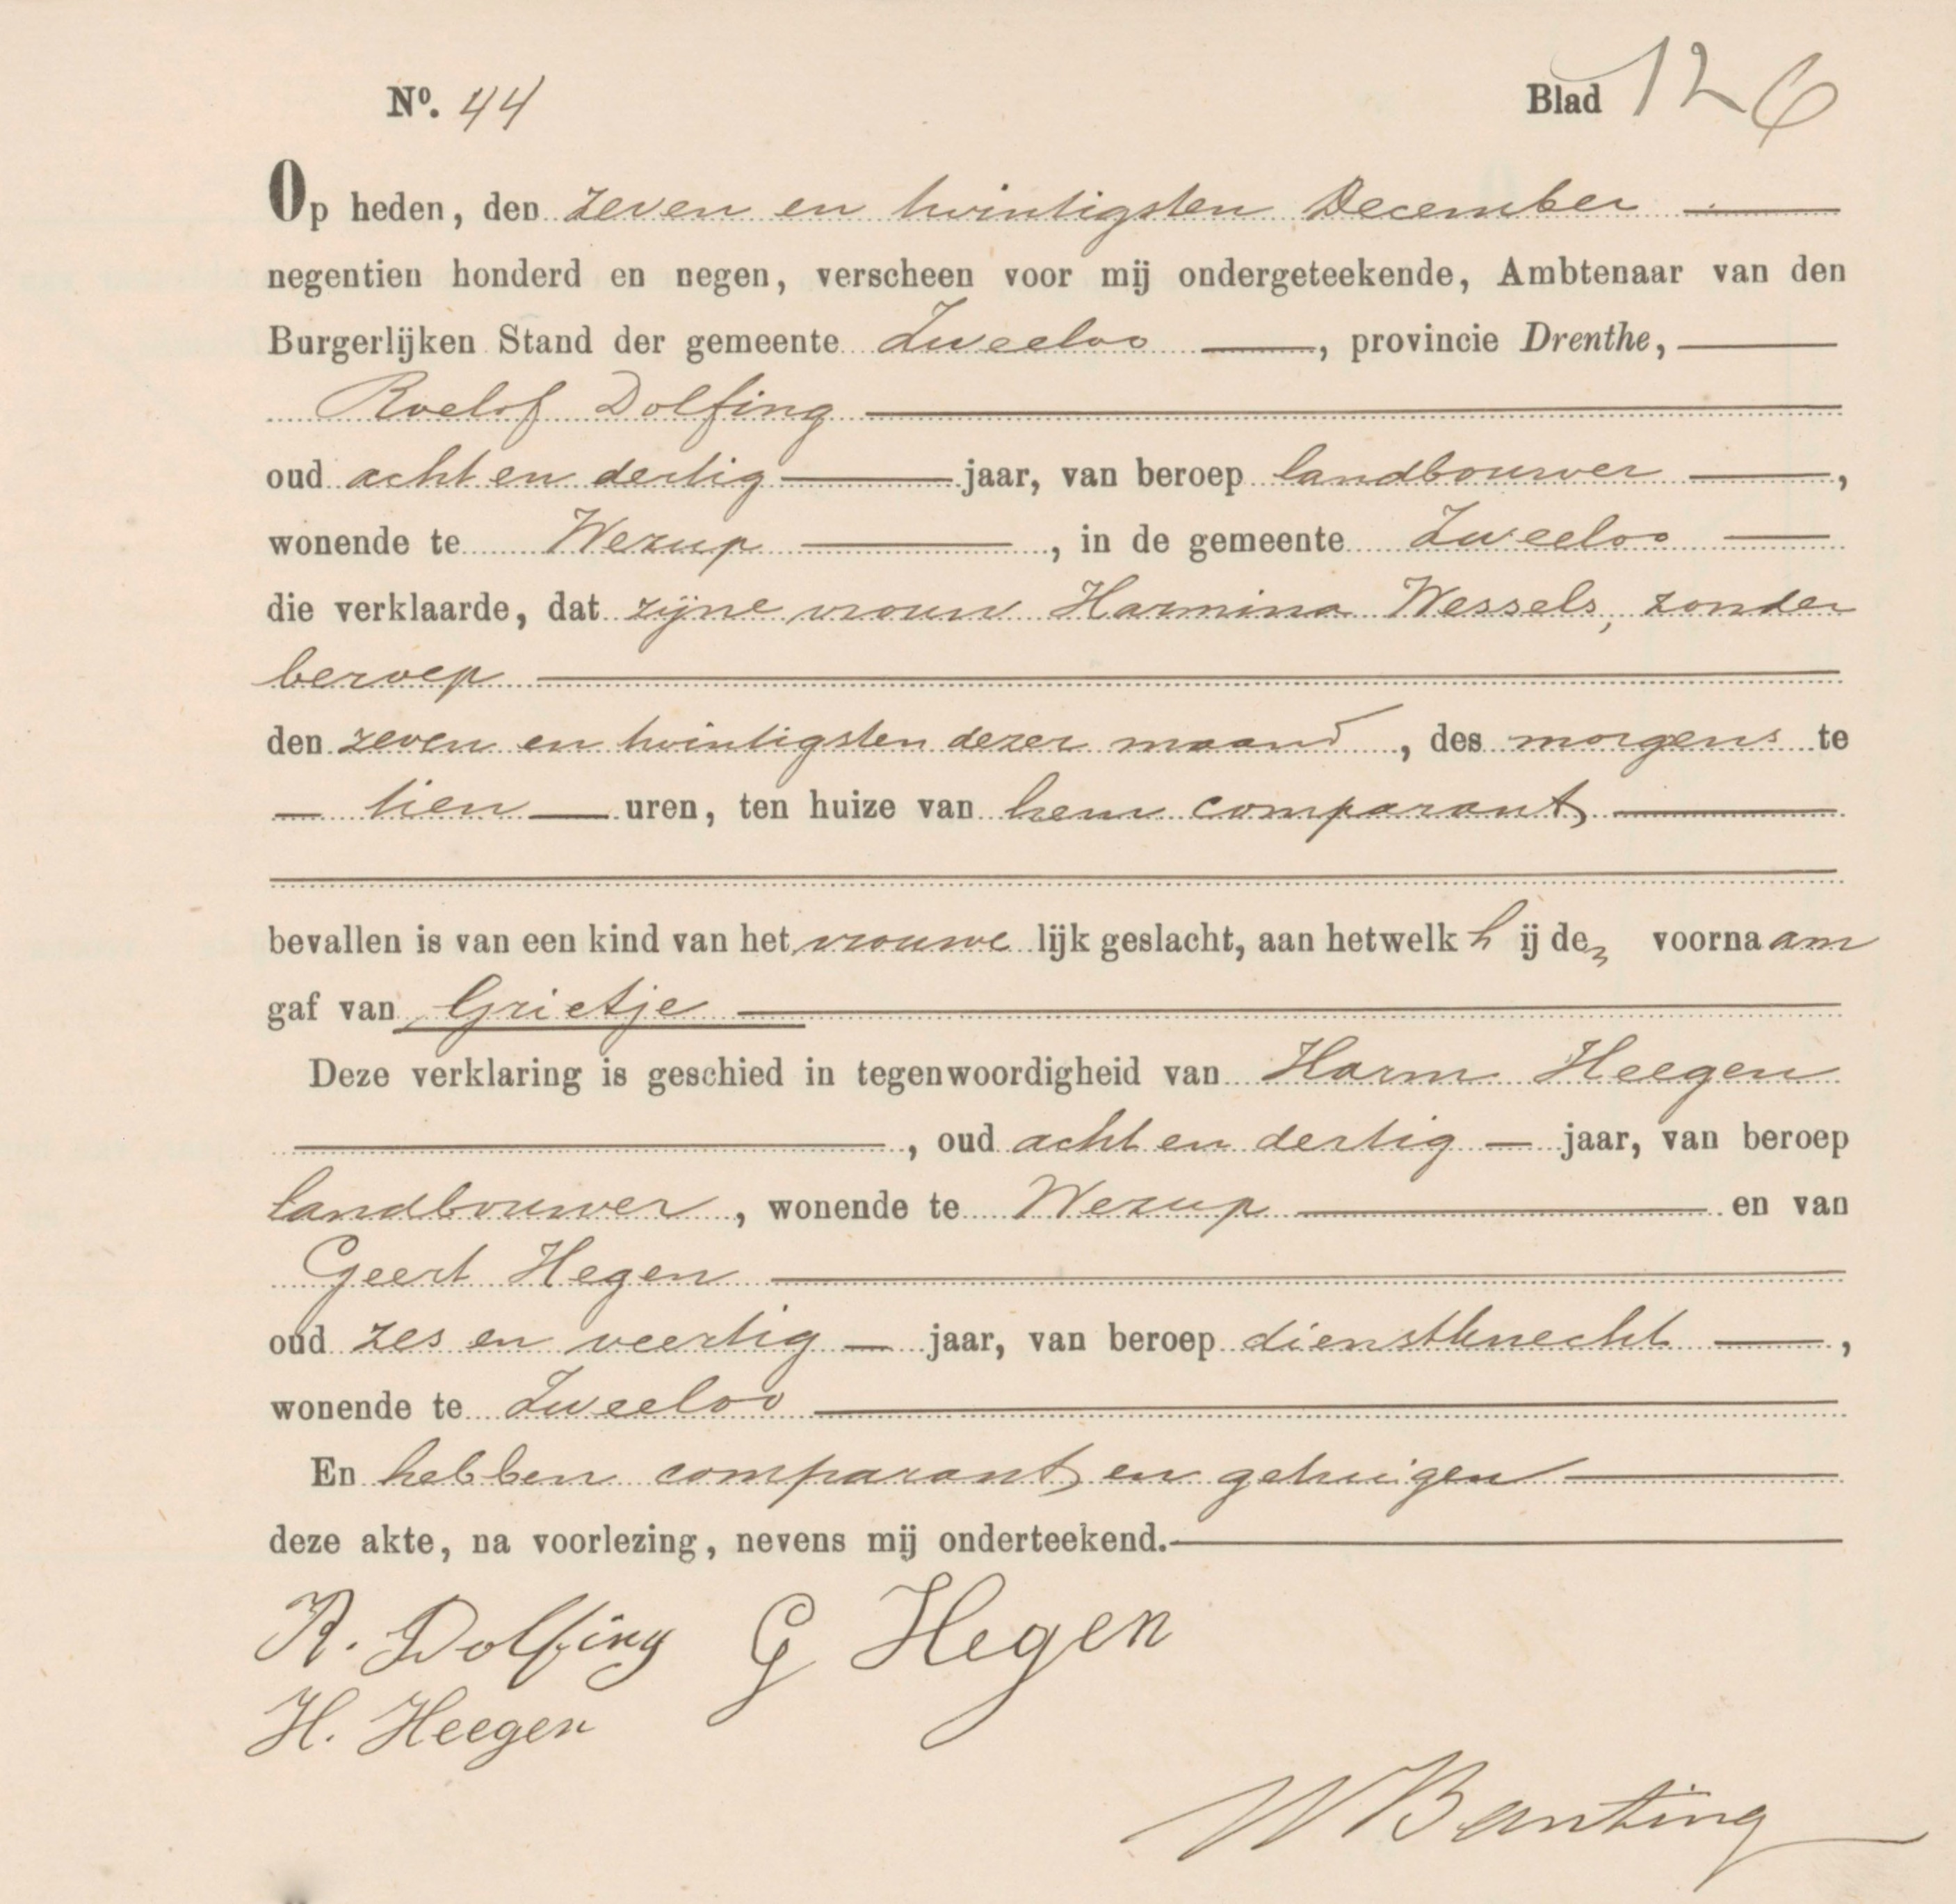 Nº. 44 Blad 126
Op heden, den zeven en twintigsten December
negentien honderd en negen, verscheen voor mij ondergeteekende, Ambtenaar van den
Burgerlijken Stand der gemeente Zweeloo, provincie Drenthe,
Roelof Dolfing
oud acht en dertig jaar, van beroep landbouwer,
wonende te Wezup, in de gemeente Zweeloo
die verklaarde, dat zijne vrouw Harmina Wessels, zonder
beroep
den zeven en twintigsten dezer maand, des morgens te
tien uren, ten huize van hem comparant,
bevallen is van een kind van het vrouwelijk geslacht, aan hetwelk hij den voornaam
gaf van Grietje
Deze verklaring is geschied in tegenwoordigheid van Harm Heegen
, oud acht en dertig jaar, van beroep
landbouwer, wonende te Wezup en van
Geert Hegen
oud zes en veertig jaar, van beroep dienstknecht,
wonende te Zweeloo
En hebben comparant en getuigen
deze akte, na voorlezing, nevens mij onderteekend.
R. Dolfing G Hegen
H. Heegen
W Banting